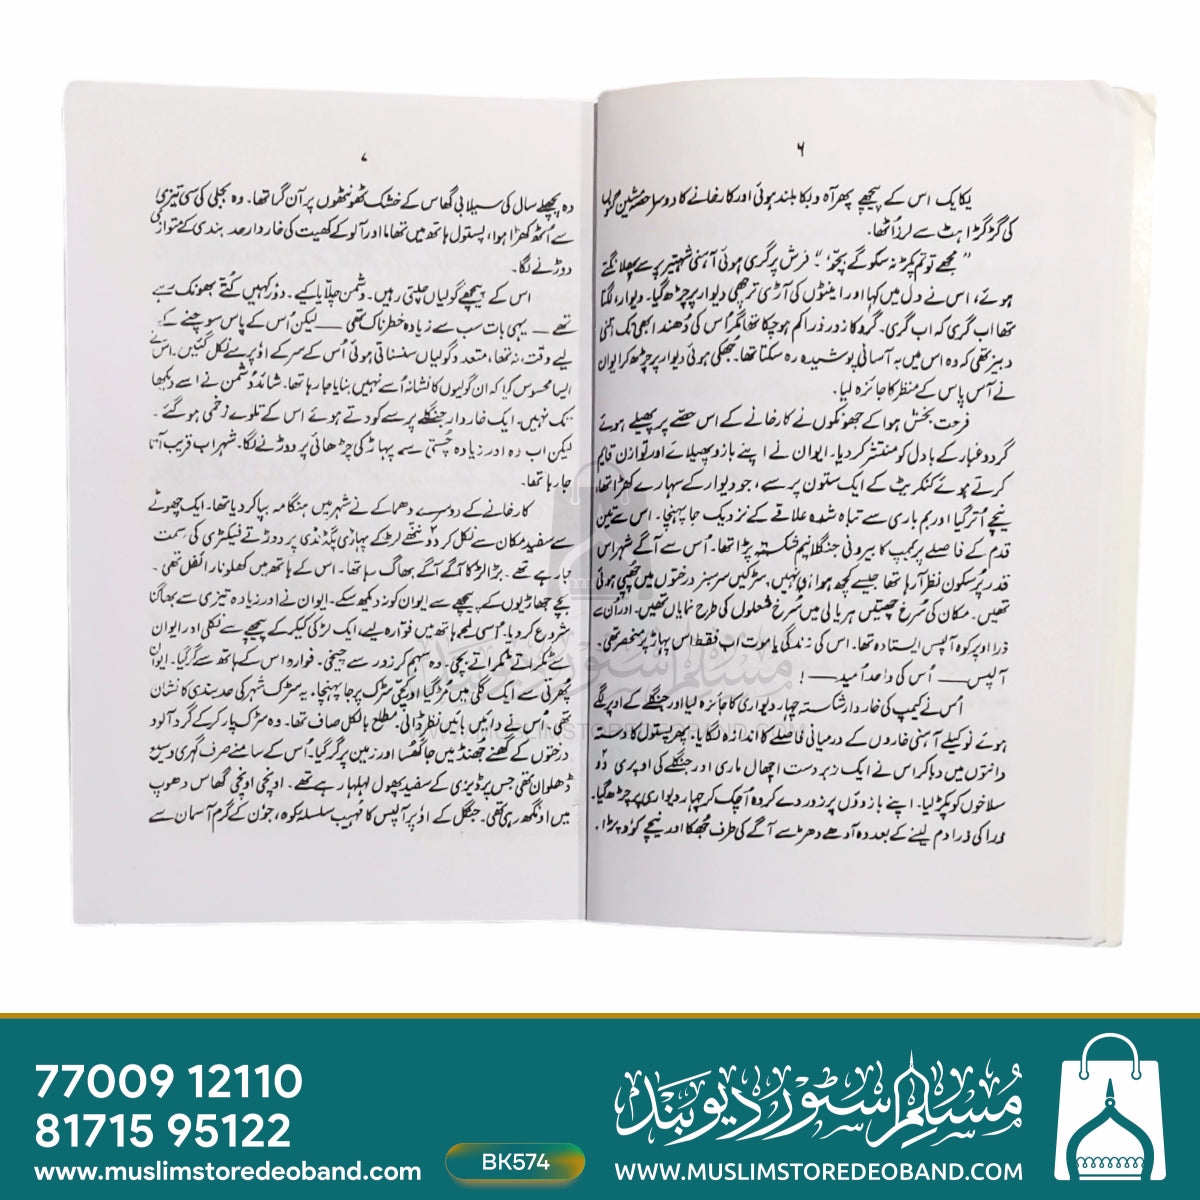 ۶
یکایک اس کے پیچھے پھر آہ و بکا بلند ہوئی اور کارخانے کا دوسرا حصّہ مشین گنوں
کی گڑگڑاہٹ سے لرز اُٹھا۔
”مجھے تو تم پکڑ نہ سکو گے بچّو!“۔ فرش پر گری ہوئی آہنی شہتیر پر سے پھلانگتے
ہوئے، اس نے دل میں کہا اور اینٹوں کی آڑی ترچھی دیوار پر چڑھ گیا۔ دیوار، لگتا
تھا اب گری کہ اب گری۔ گرد کا زور ذرا کم ہو چکا تھا مگر اُس کی دُھند ابھی تک اتنی
دبیز تھی کہ وہ اس میں بہ آسانی پوشیدہ رہ سکتا تھا۔ جُھکی ہوئی دیوار پر چڑھ کر ایوان
نے آس پاس کے منظر کا جائزہ لیا۔
فرحت بخش ہوا کے جھونکوں نے کارخانے کے اس حصّے پر پھیلے ہوئے
گرد و غبار کے بادل کو منتشر کر دیا۔ ایوان نے اپنے بازو پھیلائے اور توازن قایم
کرتے ہوئے کنکریٹ کے ایک ستون پر سے، جو دیوار کے سہارے کھڑا تھا،
نیچے اُتر گیا اور بم باری سے تباہ شدہ علاقے کے نزدیک جا پہنچا۔ اس سے تین
قدم کے فاصلے پر کیمپ کا بیرونی جنگلا نیم شکستہ پڑا تھا۔ اُس سے آگے شہر اس
قدر پُرسکون نظر آ رہا تھا جیسے کچھ ہوا ہی نہیں، سڑکیں سرسبز درختوں میں چُھپی ہوئی
تھیں۔ مکان کی سُرخ چھتیں ہریالی میں سُرخ شعلوں کی طرح نمایاں تھیں۔ اور اُن سے
ذرا اوپر کوہ آلپس ایستادہ تھا۔ اس کی زندگی یا موت اب فقط اس پہاڑ پر منحصر تھی۔
آلپس ــــ اُس کی واحد اُمید ــــ!
اُس نے کیمپ کی خاردار شکستہ چہار دیواری کا جائزہ لیا اور جنگلے کے اوپر لگے
ہوئے نوکیلے آہنی خاروں کے درمیانی فاصلے کا اندازہ لگایا۔ پھر پستول کا دستہ
دانتوں میں دبا کر اس نے ایک زبردست اچھال ماری اور جنگلے کی اوپری دو
سلاخوں کو پکڑ لیا۔ اپنے بازوؤں پر زور دے کر وہ اُچک کر چہار دیواری پر چڑھ گیا۔
ذرا کی ذرا دم لینے کے بعد وہ آدھے دھڑ سے آگے کی طرف جُھکا اور نیچے کود پڑا۔
۷
وہ پچھلے سال کی سیلابی گھاس کے خشک ٹھونٹھوں پر آن گرا تھا۔ وہ بجلی کی سی تیزی
سے اُٹھ کھڑا ہوا، پستول ہاتھ میں تھاما اور آلو کے کھیت کی خاردار حد بندی کے متوازی
دوڑنے لگا۔
اس کے پیچھے گولیاں چلتی رہیں۔ دشمن چلّایا کیے۔ دُور کہیں کُتّے بھونک رہے
تھے ــــ یہی بات سب سے زیادہ خطرناک تھی ــــ لیکن اُس کے پاس سوچنے کے
لیے وقت، نہ تھا، متعدد گولیاں سنسناتی ہوئی اُس کے سر کے اوپر سے نکل گئیں۔ اس نے
ایسا محسوس کیا کہ ان گولیوں کا نشانہ اُسے نہیں بنایا جا رہا تھا۔ شائد دُشمن نے اسے دیکھا
تک نہیں۔ ایک خاردار جنگلے پر سے کودتے ہوئے اس کے تلوے زخمی ہو گئے۔
لیکن اب وہ اور زیادہ چُستی سے پہاڑ کی چڑھائی پر دوڑنے لگا۔ شہر اب قریب آتا
جا رہا تھا۔
کارخانے کے دوسرے دھماکے نے شہر میں ہنگامہ بپا کر دیا تھا۔ ایک چھوٹے
سے سفید مکان سے نکل کر دو ننھّے لڑکے پہاڑی پگڈنڈی پر دوڑتے فیکٹری کی سمت
جا رہے تھے۔ بڑا لڑکا آگے آگے بھاگ رہا تھا۔ اس کے ہاتھ میں کھلونا رائفل تھی۔
بچّے جھاڑیوں کے پیچھے سے ایوان کو نہ دیکھ سکے۔ ایوان نے اور زیادہ تیزی سے بھاگنا
شروع کر دیا۔ اُسی لمحے ہاتھ میں فوارہ لیے، ایک لڑکی کیکر کے پیچھے سے نکلی اور ایوان
سے ٹکراتے ٹکراتے بچی۔ وہ سہم کر زور سے چیخی۔ فوارہ اس کے ہاتھ سے گر گیا۔ ایوان
پُھرتی سے ایک گلی میں مُڑ گیا اور پکّی سڑک پر جا پہنچا۔ یہ سڑک شہر کی حد بندی کا نشان
تھی، اُس نے دائیں بائیں نظر ڈالی، مطلع بالکل صاف تھا۔ وہ سڑک پار کر کے گرد آلود
درختوں کے گھنے جھنڈ میں جا گھسا اور زمین پر گر گیا۔ اُس کے سامنے صرف گہری دبیز
ڈھلوان تھی جس پر ڈیزی کے سفید پھول لہلہا رہے تھے۔ اونچی اونچی گھاس دھوپ
میں اونگھ رہی تھی۔ جنگل کے اوپر آلپس کا مُہیب سلسلہ کوہ، جون کے گرم آسمان سے
مسلم سٹور دیوبند
WWW.MUSLIMSTOREDEOBAND.COM
77009 12110
81715 95122
www.muslimstoredeoband.com
BK574
مسلم سٹور دیوبند
WWW.MUSLIMSTOREDEOBAND.COM